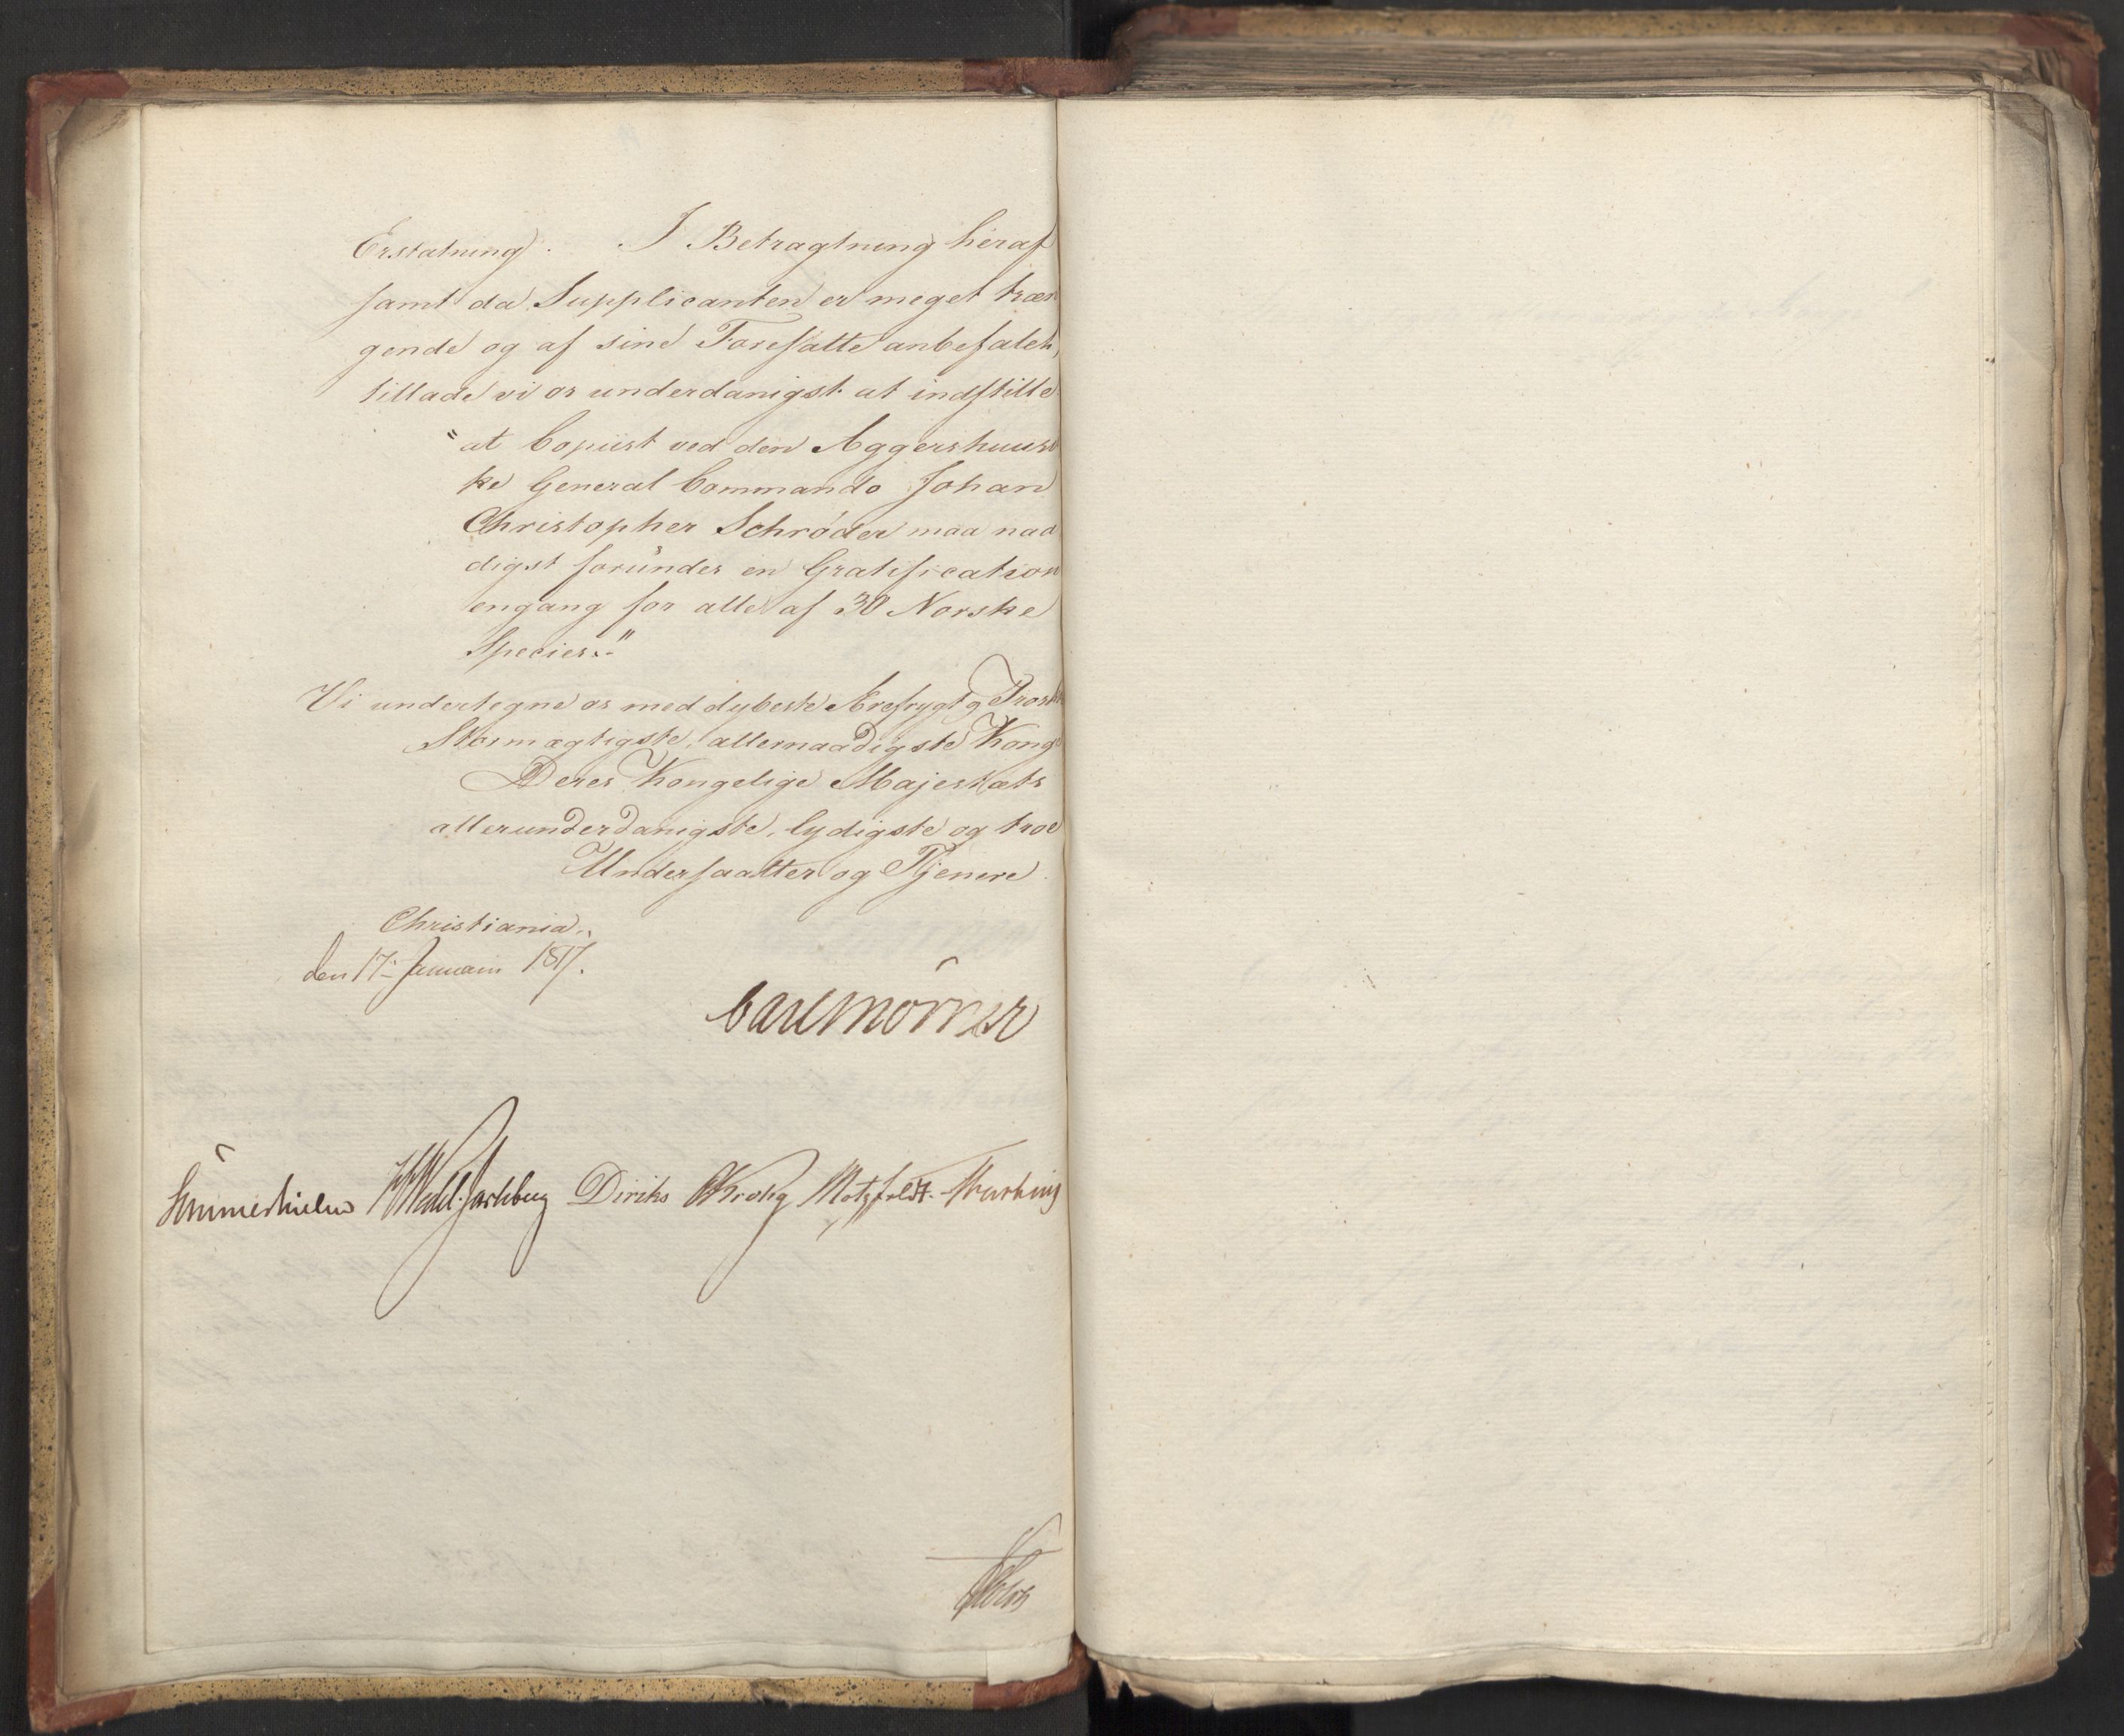 Erstatning. I Betragtning heraf
samt da Supplicanten er meget træn
gende og af sine Foresatte anbefalet,
tillade vi os underdanigst at indstille
"at Copiist ved den Aggershuusi
ke General Commando Johan
Christopher Schrøder maa naa
digst forundes en Gratification
engang for alle af 30 Norske
Species."
Vi undertegne os med dybeste Ærefrygt og Trosk
Stormægtigste, allernaadigste Konge
Deres Kongelige Majestæts
allerunderdanigste, lydigste og troe
Undersaatter og Tjenere.
Christiania,
den 17de Januarii 1817.
Carl Mörner
Sommerhielm HWedel-Jarlsberg Diriks CKrohg Motzfeldt.
Holst